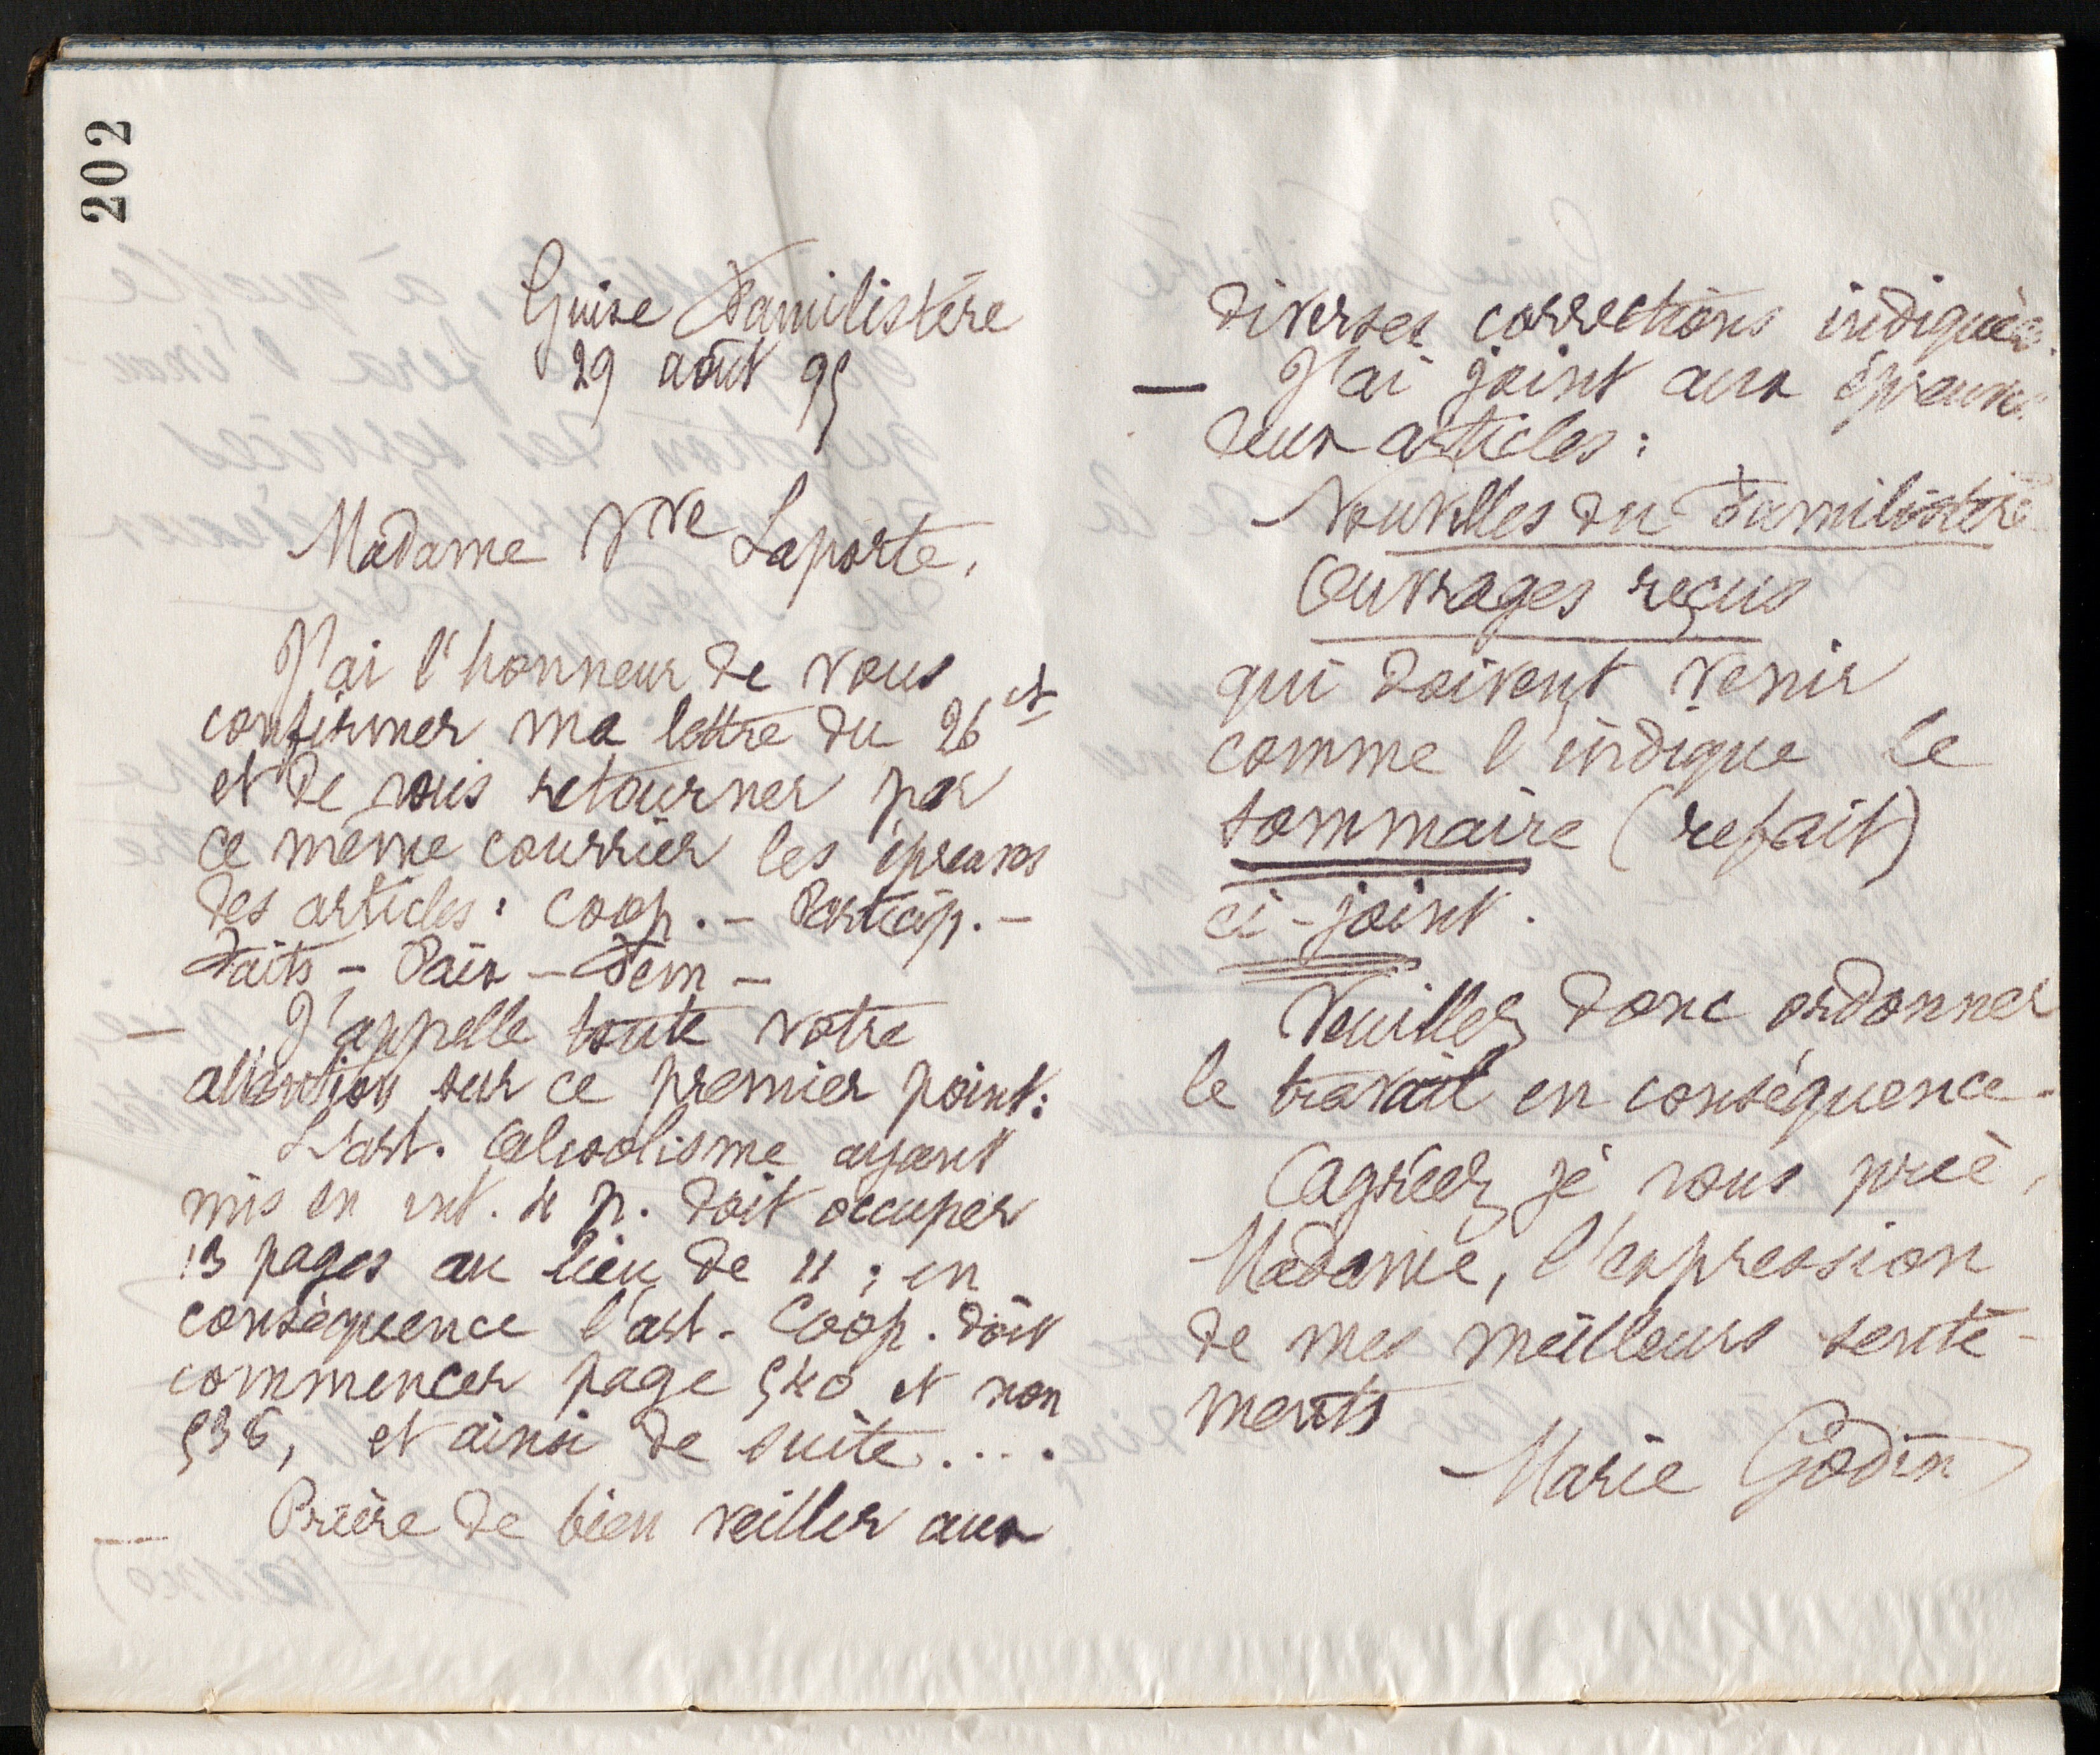 202
Guise Familistère
29 août 95
Madame Vve Laporte,
J'ai l'honneur de vous
confirmer ma lettre du 26 ct
et de vous retourner par
ce même courrier les épreuves
des articles : Coop. - Particip. -
Faits - Paix - Fem -
— J'appelle toute votre
attention sur ce premier point :
L'art. Alcoolisme ayant
mis en int. 4 p. doit occuper
13 pages au lieu de 11 ; en
conséquence l'art. Coop. doit
commencer page 540 et non
538, et ainsi de suite....
— Prière de bien veiller aux
diverses corrections indiquées.
— J'ai joint aux épreuves
deux articles :
Nouvelles du Familistère
Ouvrages reçus
qui doivent venir
comme l'indique le
sommaire (refait)
ci-joint.
Veuillez donc ordonner
le travail en conséquence.
Agréez, je vous prie,
Madame, l'expression
de mes meilleurs senti-
ments
Marie Godin